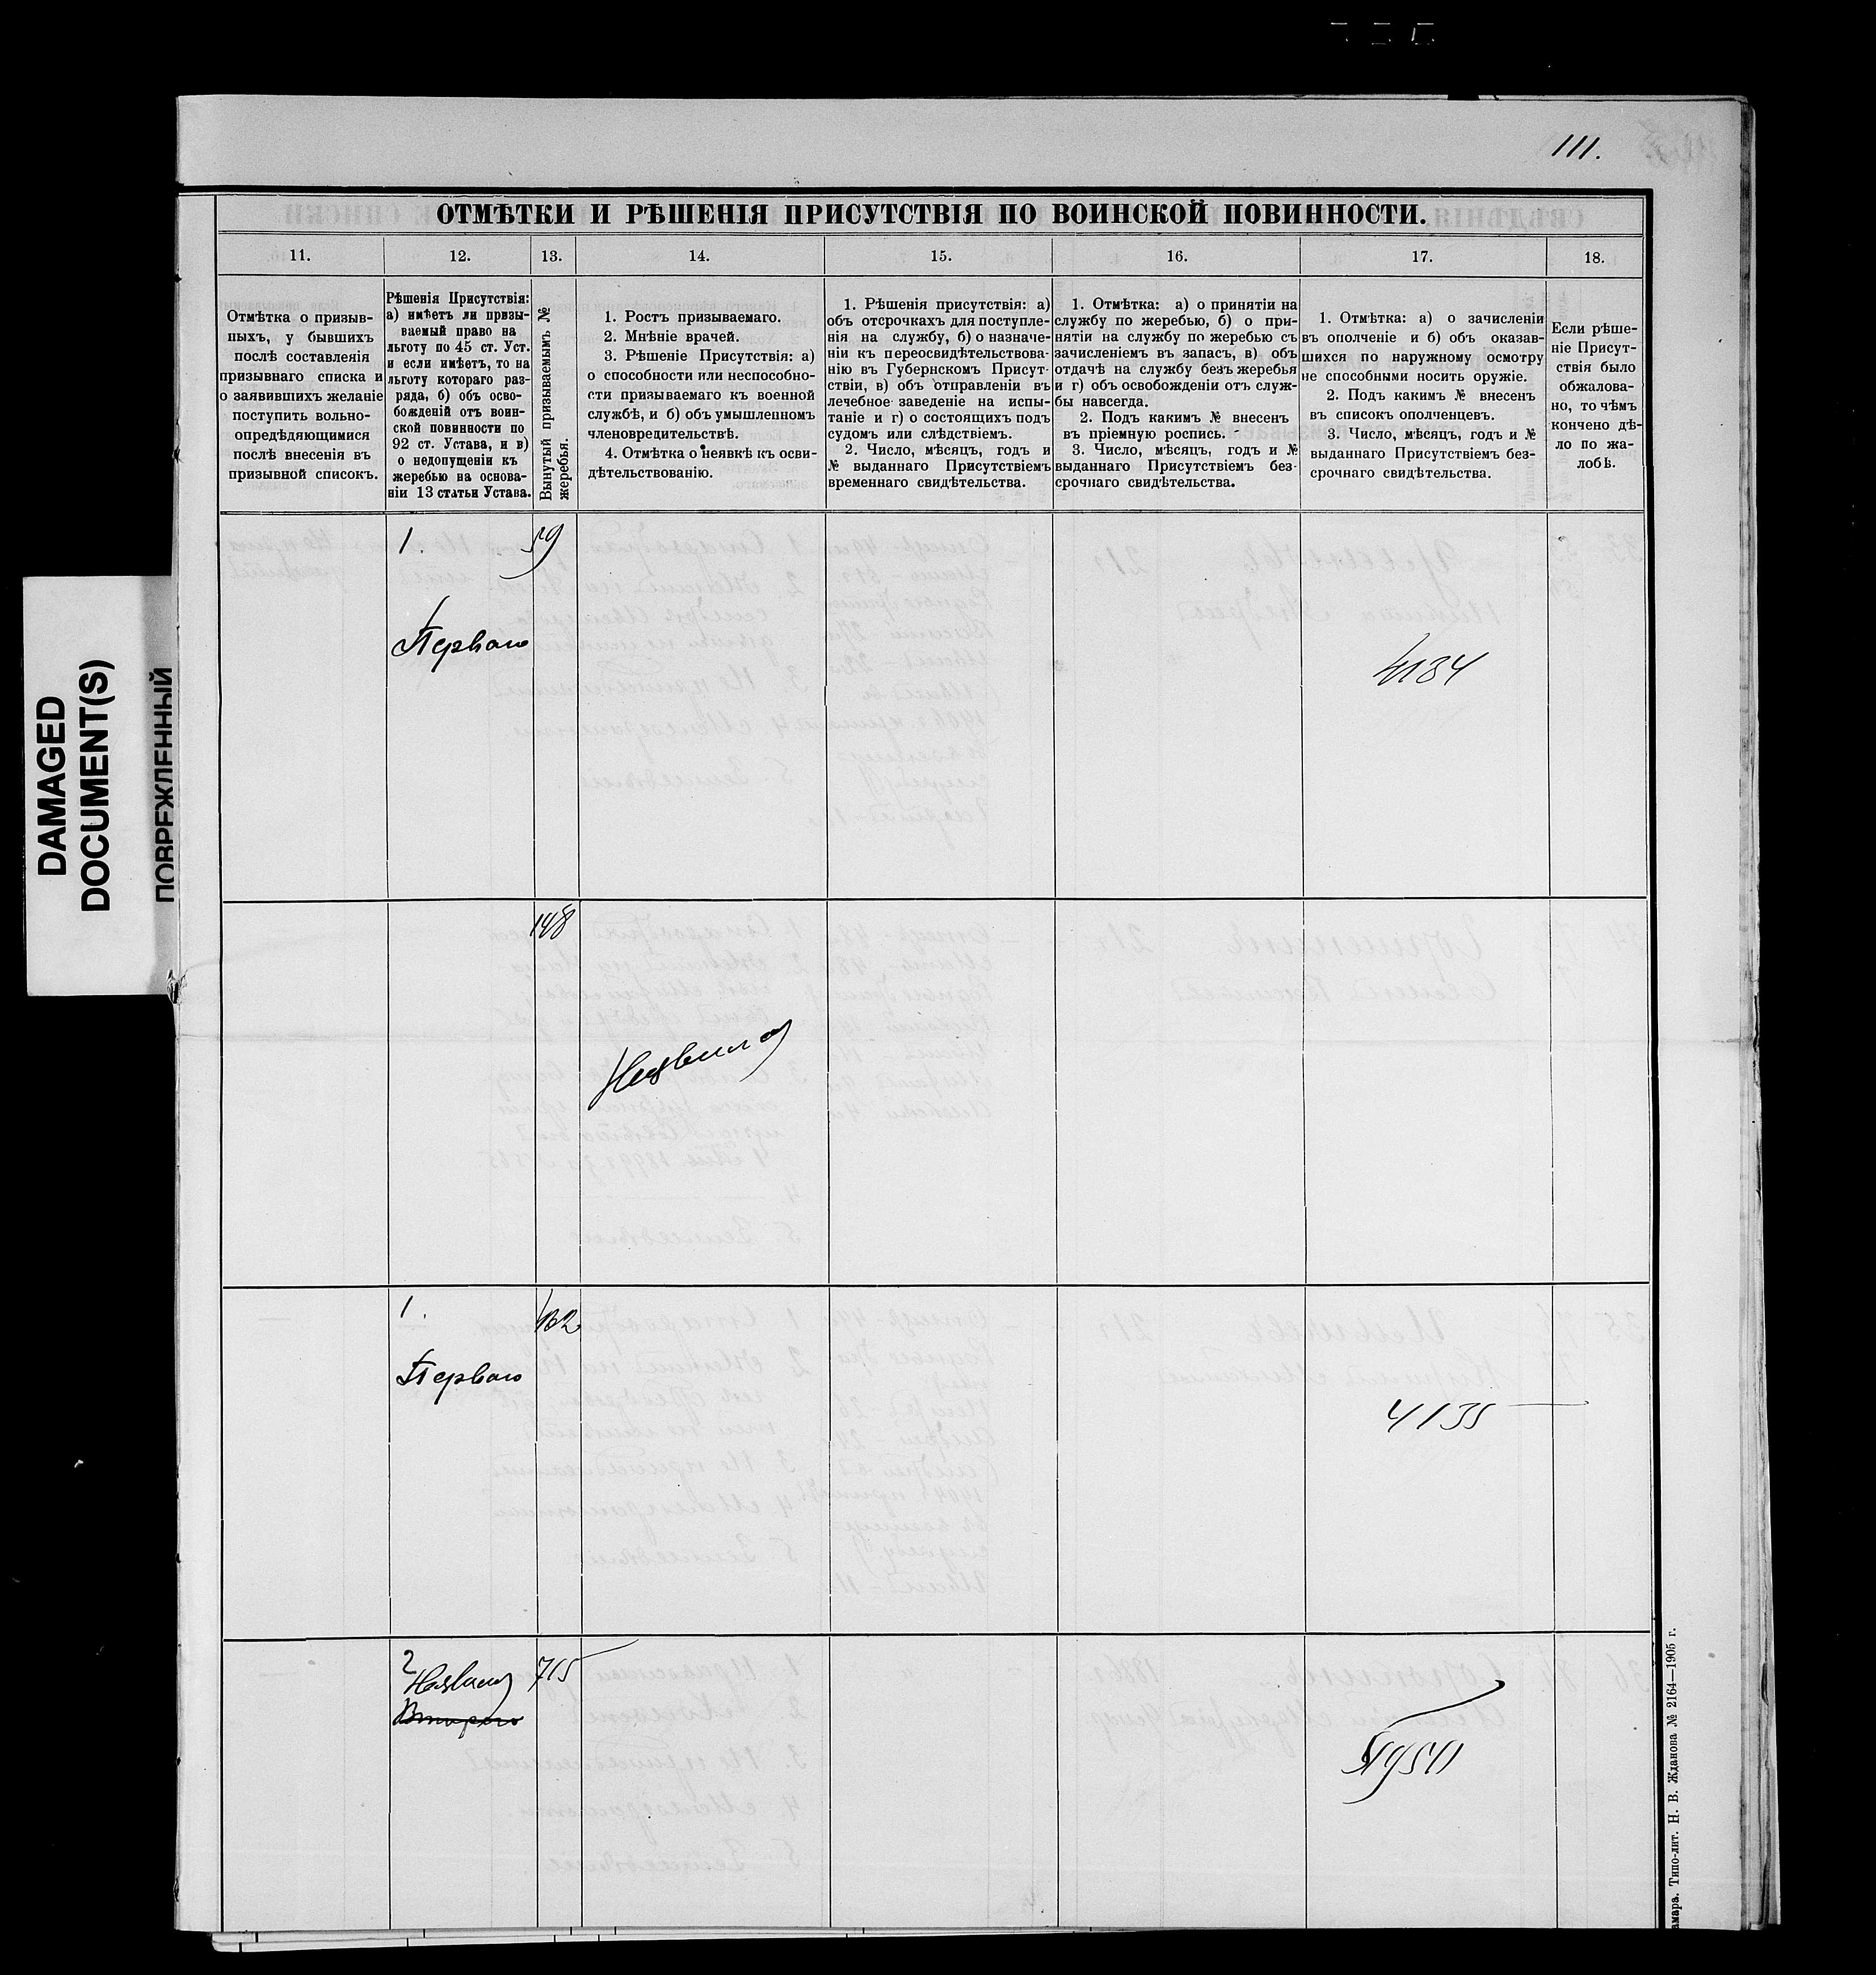 111.
ОТМѢТКИ И РѢШЕНІЯ ПРИСУТСТВІЯ ПО ВОИНСКОЙ ПОВИННОСТИ.
11.
12.
13.
14.
15.
16.
17.
18.
Отмѣтка о призыв-
ныхъ, у бывшихъ
послѣ составленія
призывнаго списка и
о заявившихъ желаніе
поступить вольно-
опредѣдяющимися
послѣ внесенія въ
призывной списокъ.
Рѣшенія Присутствія:
а) имѣетъ ли призы-
ваемый право на
льготу по 45 ст. Уст.
и если имѣетъ, то на
льготу котораго раз-
ряда, б) объ осво-
божденій отъ воин-
ской повинности по
92 ст. Устава, и в)
о недопущеніи къ
жеребью на основа-
ніи 13 статьи Устава.
Вынутый призываемымъ №
жеребья.
1. Ростъ призываемаго.
2. Мнѣніе врачей.
3. Рѣшеніе Присутствія: а)
о способности или неспособно-
сти призываемаго къ военной
службѣ, и б) объ умышленномъ
членовредительствѣ.
4. Отмѣтка о неявкѣ къ осви-
дѣтельствованію.
1. Рѣшенія присутствія: а)
объ отсрочкахъ для поступле-
нія на службу, б) о назначе-
ніи къ переосвидѣтельствова-
нію въ Губернскомъ Присут-
ствіи, в) объ отправленіи въ
лечебное заведеніе на испы-
таніе и г) о состоящихъ подъ
судомъ или слѣдствіемъ.
2. Число, мѣсяцъ, годъ и
№ выданнаго Присутствіемъ
временнаго свидѣтельства.
1. Отмѣтка: а) о принятіи на
службу по жеребью, б) о при-
нятіи на службу по жеребью съ
зачисленіемъ въ запасъ, в) объ
отдачѣ на службу безъ жеребья
и г) объ освобожденіи отъ служ-
бы навсегда.
2. Подъ какимъ № внесенъ
въ пріемную роспись.
3. Число, мѣсяцъ, годъ и №
выданнаго Присутствіемъ без-
срочнаго свидѣтельства.
1. Отмѣтка: а) о зачисленіи
въ ополченіе и б) объ оказав-
шихся по наружному осмотру
не способными носить оружіе.
2. Подъ какимъ № внесенъ
въ списокъ ополченцевъ.
3. Число, мѣсяцъ, годъ и №
выданнаго Присутствіемъ без-
срочнаго свидѣтельства.
Если рѣше-
ніе Присут-
ствія было
обжалова-
но, то чѣмъ
кончено дѣ-
ло по жа-
лобѣ.
1.
59
Перваго
4134
148
Неявился
1.
162
Перваго
4135
2
Неявился
715
Втораго
DAMAGED
DOCUMENT(S)
ПОВРЕЖДЕННЫЙ
амара. Типо-лит. Н. В. Жданова № 2164—1905 г.